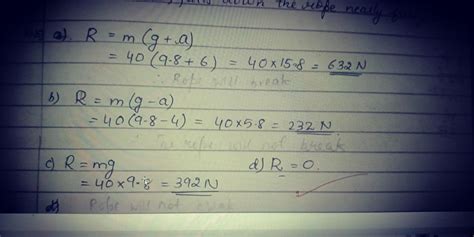 down the rope nearly
a) R = m(g+a)
= 40 (9.8 + 6) = 40×15.8 = 632 N
∴ Rope will break
b) R = m(g-a)
= 40(9.8 - 4) = 40×5.8 = 232 N
∴ The rope will not break
c) R = mg d) R = 0.
= 40 × 9.8 = 392 N
d) Rope will not break